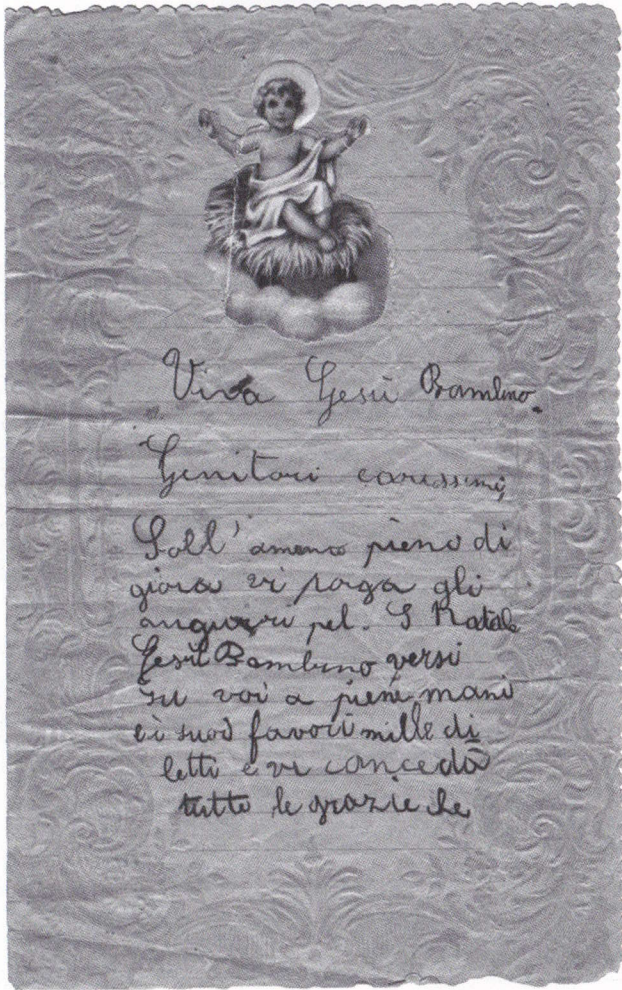 Viva Gesù Bambino.
Genitori carissimi,
Soll' ameno pieno di
gioia vi poga gli
auguri pel. S Natale
Gesù Bambino versi
su voi a piene mani
ei suoi favori mille di
letti e vi concedà
tutte le grazie che